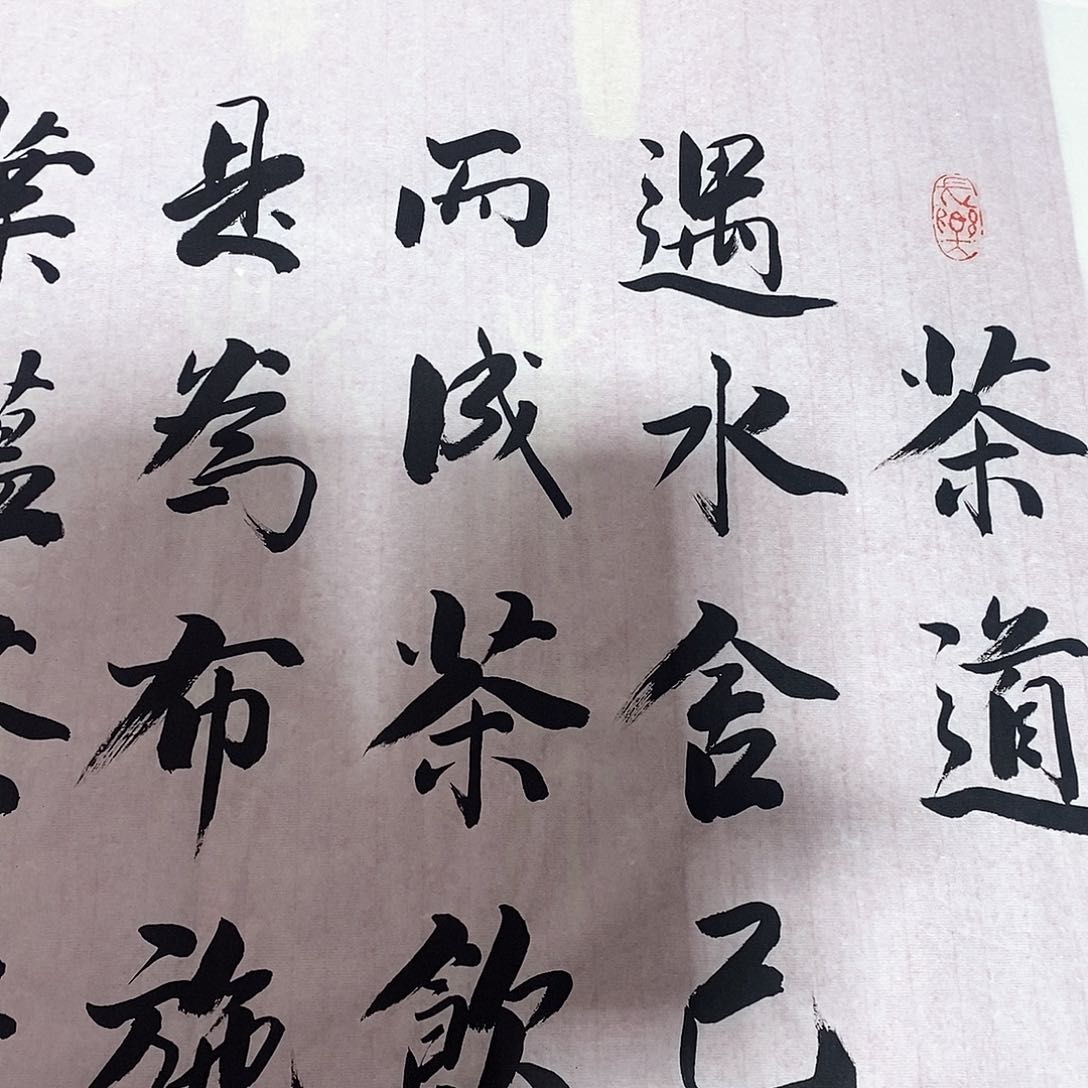 茶道
遇水舍己
而成茶飲
是為布施
葉蘊茶